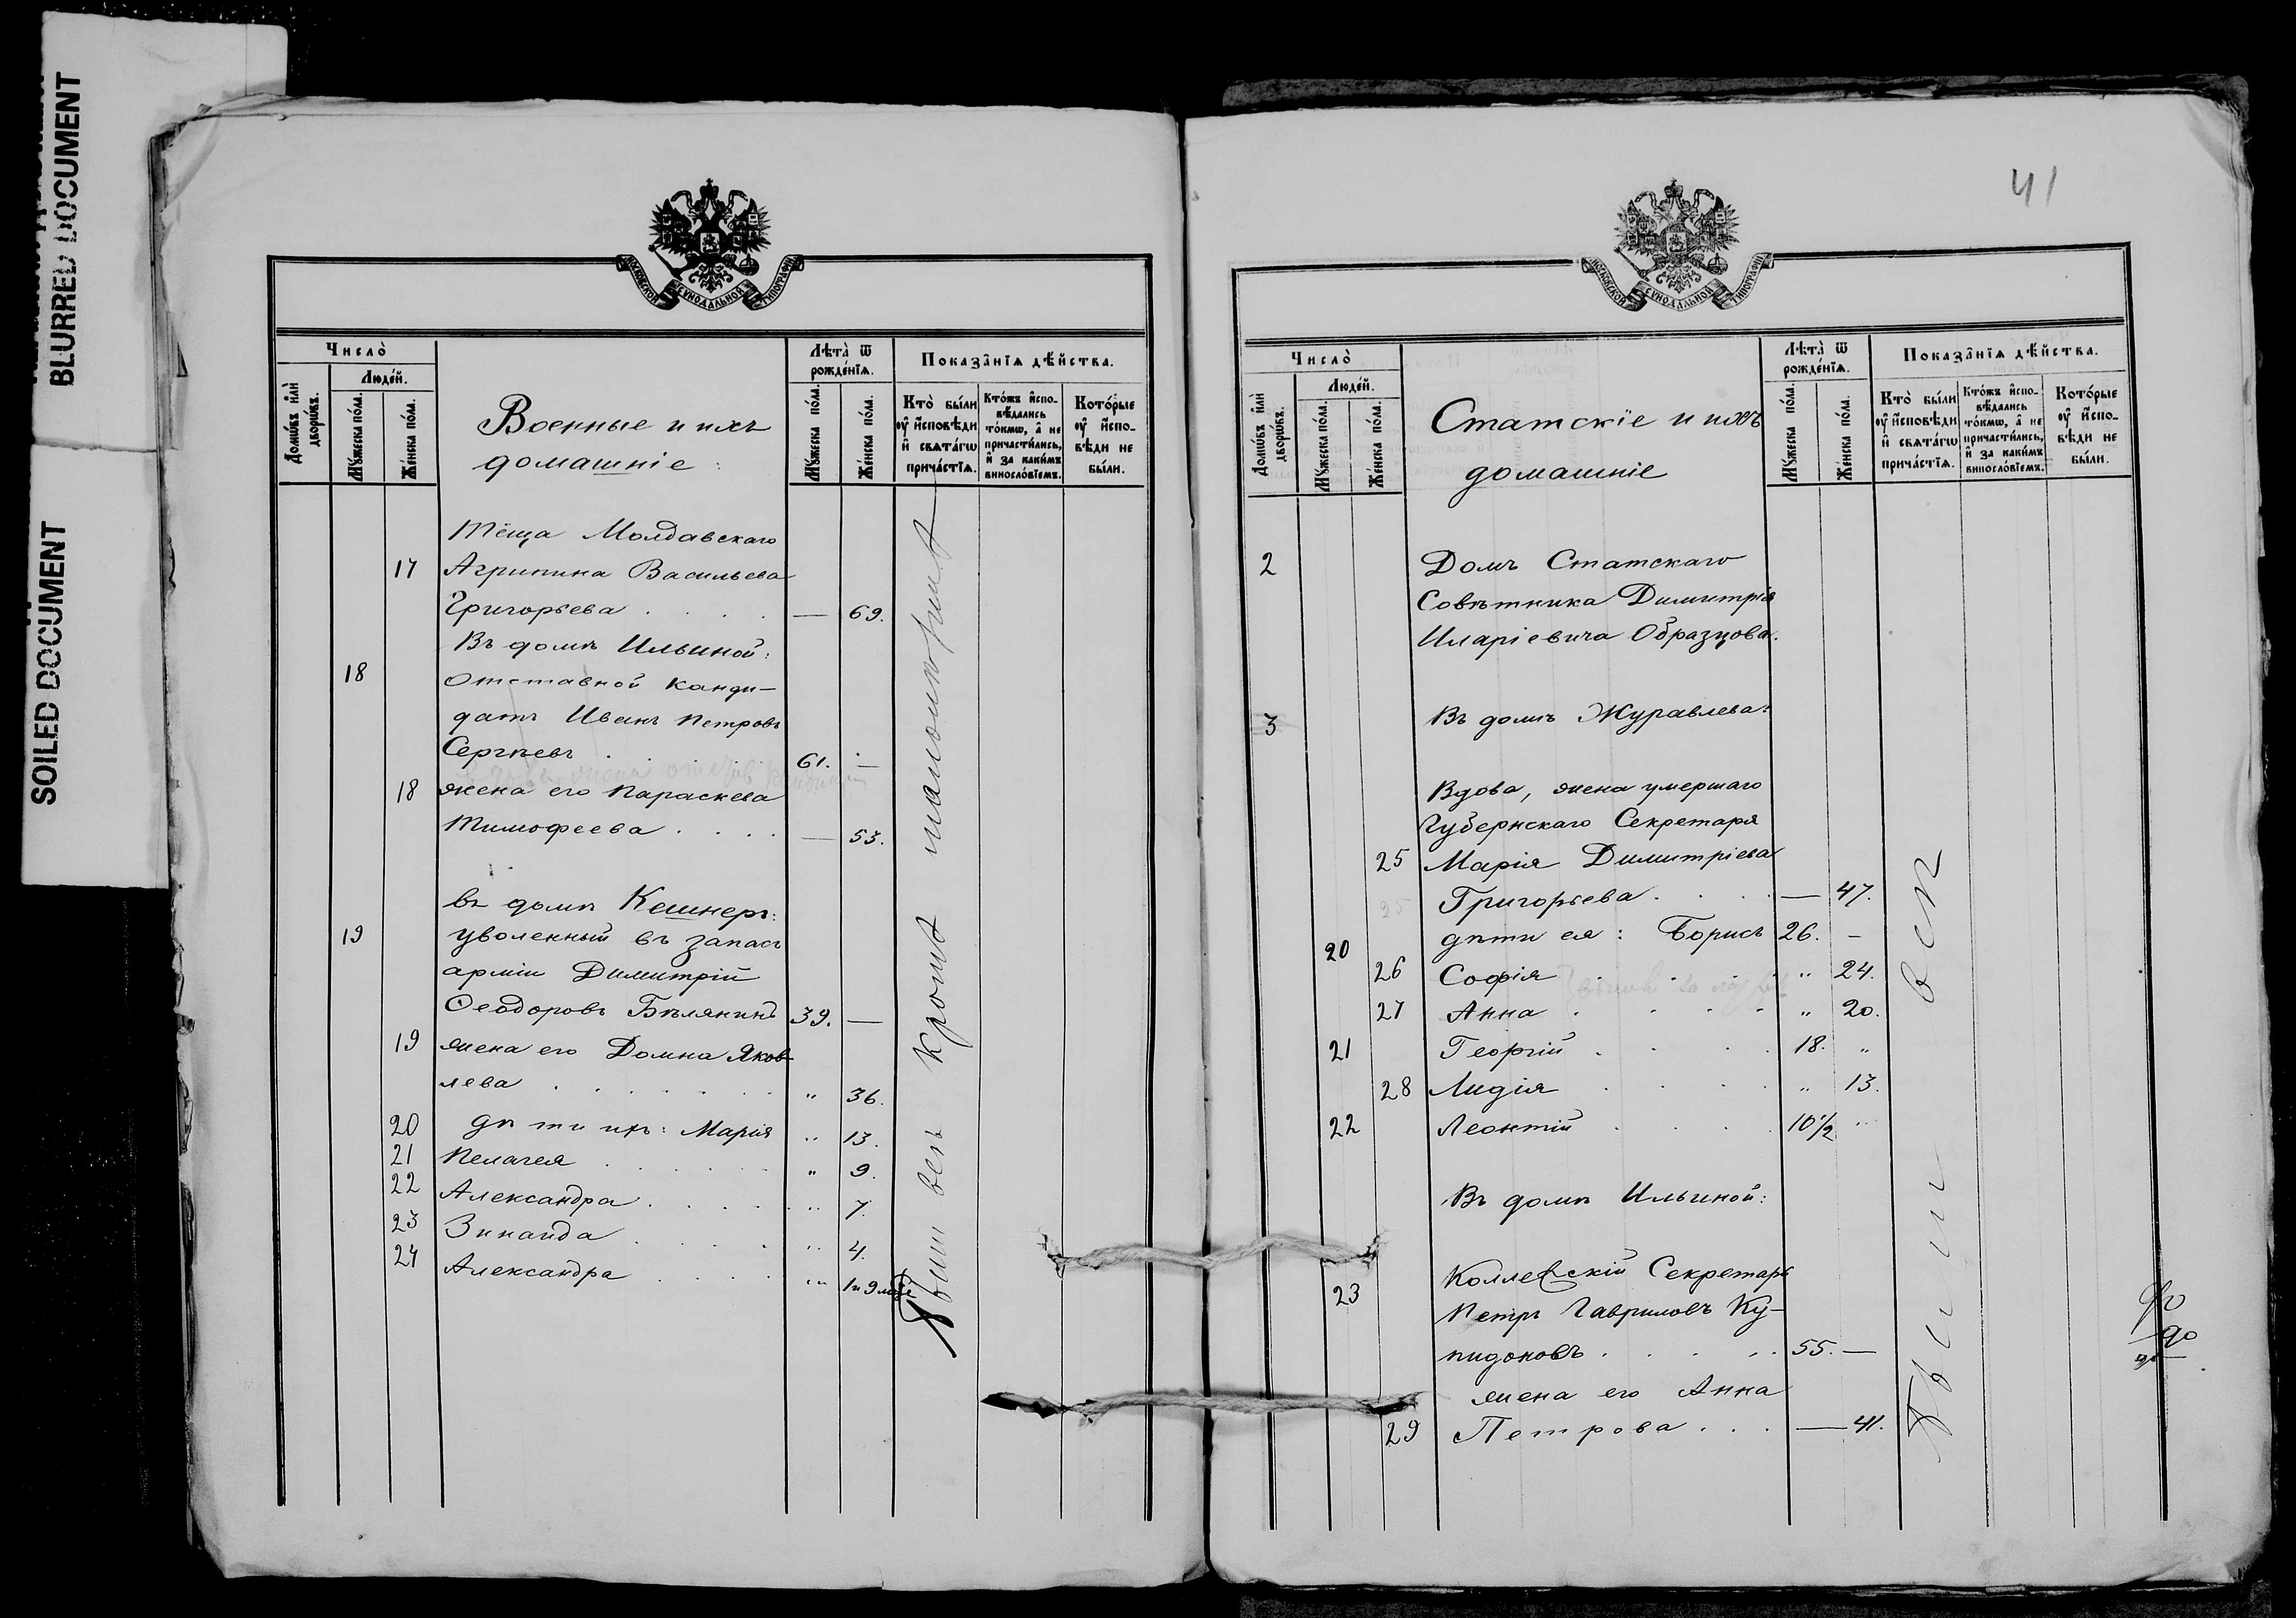 BLURRED DOCUMENT
SOILED DOCUMENT
МОСКОВСКОЙ СѴНОДАЛЬНОЙ ТИПОГРАФІИ
Число̀
Люде́й.
Домѡ́въ и҆лѝ дворѡ́въ.
Мꙋ́жеска по́ла.
Же́нска по́ла.
Военные и ихъ
домашніе:
Лѣта̀ ѿ рожде́нїѧ.
Мꙋ́жеска по́ла.
Же́нска по́ла.
Показа̑нїѧ дѣ́йства.
Кто̀ бы́ли оу҆ и҆сповѣди и҆ свѧта́гѡ прича́стїѧ.
Кто́жъ и҆сповѣдались то́кмѡ, а҆ не причасти́лись, и҆ за каки́мъ винословїемъ.
Кото́рые оу҆ и҆сповѣди не бы́ли.
Тёща Молдавскаго
17 Агрипина Васильева
Григорьева . . . . — 69.
Въ домѣ Ильиной:
18 Отставной канди-
датъ Иванъ Петровъ
Сергѣевъ . . . . . 61. —
18 жена его Параскева
Тимофеева . . . . — 53.
въ домѣ Кешнеръ:
19 уволенный въ запасъ
арміи Димитрій
Ѳеодоровъ Бѣлянинъ 39. —
19 жена его Домна Яков-
лева . . . . . . " 36.
20 дѣти ихъ: Марія " 13.
21 Пелагея . . . . . " 9.
22 Александра . . . . " 7.
23 Зинаида . . . . " 4.
24 Александра . . . . " 1 и 9 мѣс
Были всѣ кромѣ
41
МОСКОВСКОЙ СѴНОДАЛЬНОЙ ТИПОГРАФІИ
Число̀
Люде́й.
Домѡ́въ и҆лѝ дворѡ́въ.
Мꙋ́жеска по́ла.
Же́нска по́ла.
Статскіе и ихъ
домашніе
Лѣта̀ ѿ рожде́нїѧ.
Мꙋ́жеска по́ла.
Же́нска по́ла.
Показа̑нїѧ дѣ́йства.
Кто̀ бы́ли оу҆ и҆сповѣди и҆ свѧта́гѡ прича́стїѧ.
Кто́жъ и҆сповѣдались то́кмѡ, а҆ не причасти́лись, и҆ за каки́мъ винословїемъ.
Кото́рые оу҆ и҆сповѣди не бы́ли.
2 Домъ Статскаго
Совѣтника Димитрія
Иларіевича Образцова.
3 Въ домѣ Журавлева:
Вдова, жена умершаго
Губернскаго Секретаря
25 Марія Димитріева
Григорьева . . . — 47.
20 дѣти ея: Борисъ 26. —
26 Софія . . . . " 24.
27 Анна . . . . " 20.
21 Георгій . . . . 18. "
28 Лидія . . . . " 13.
22 Леонтій . . . . 10½ "
Въ домѣ Ильиной:
Коллежскій Секретарь
23 Петръ Гавриловъ Ку-
пидоновъ . . . . . 55. —
жена его Анна
29 Петрова . . . — 41.
Были всѣ